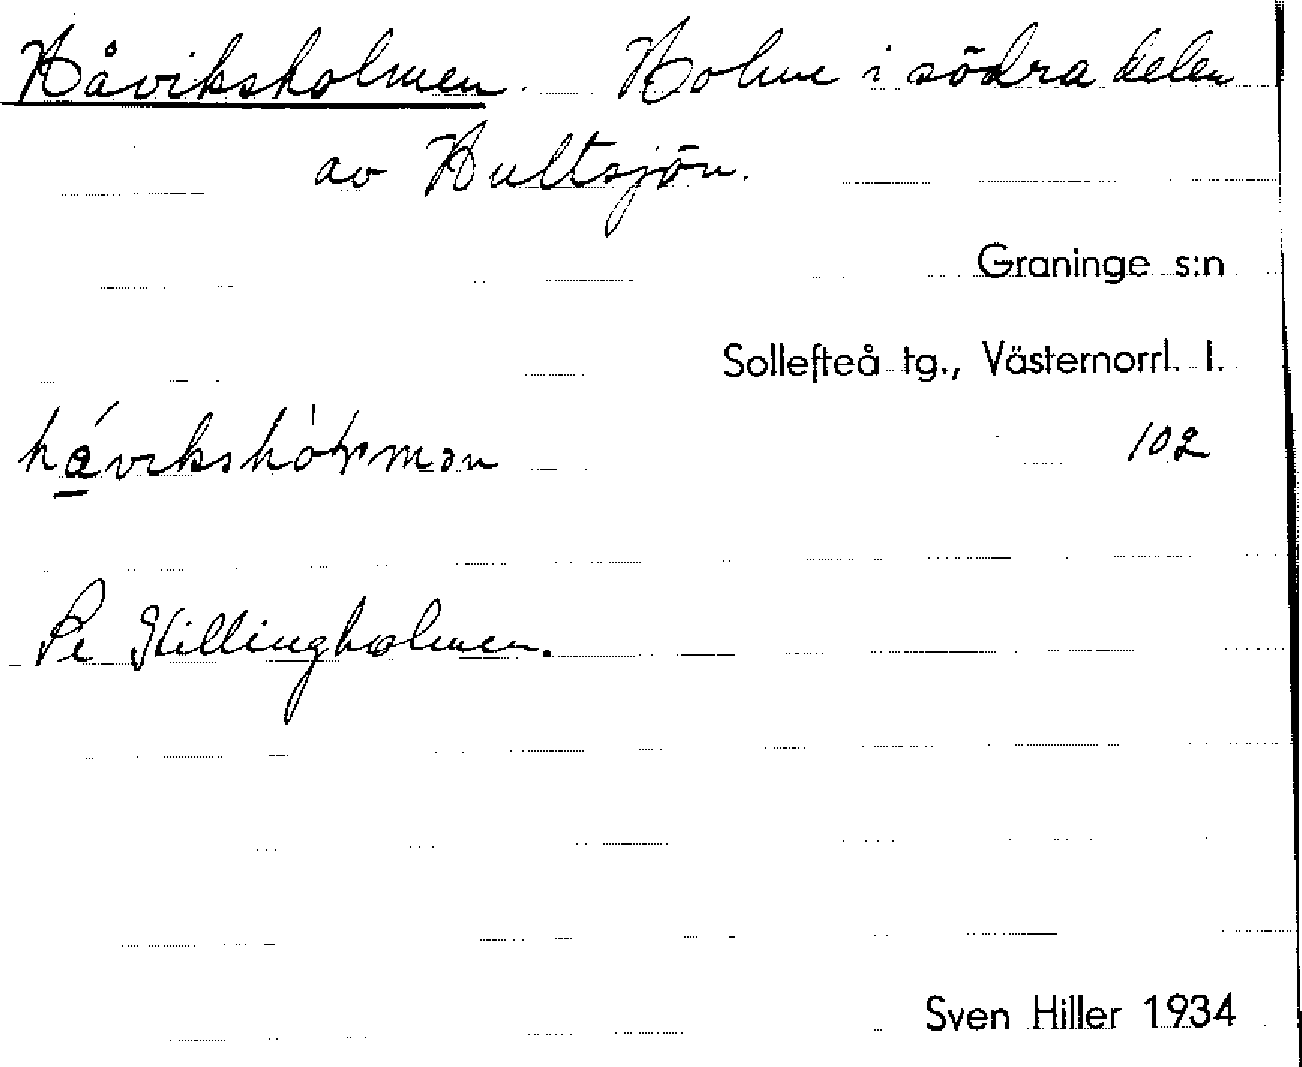 Håviksholmen. Holme i södra delen
av Hultsjön.
Graninge s:n
Sollefteå tg., Västernorrl. l.
102
Se Killingholmen.
Sven Hiller 1934